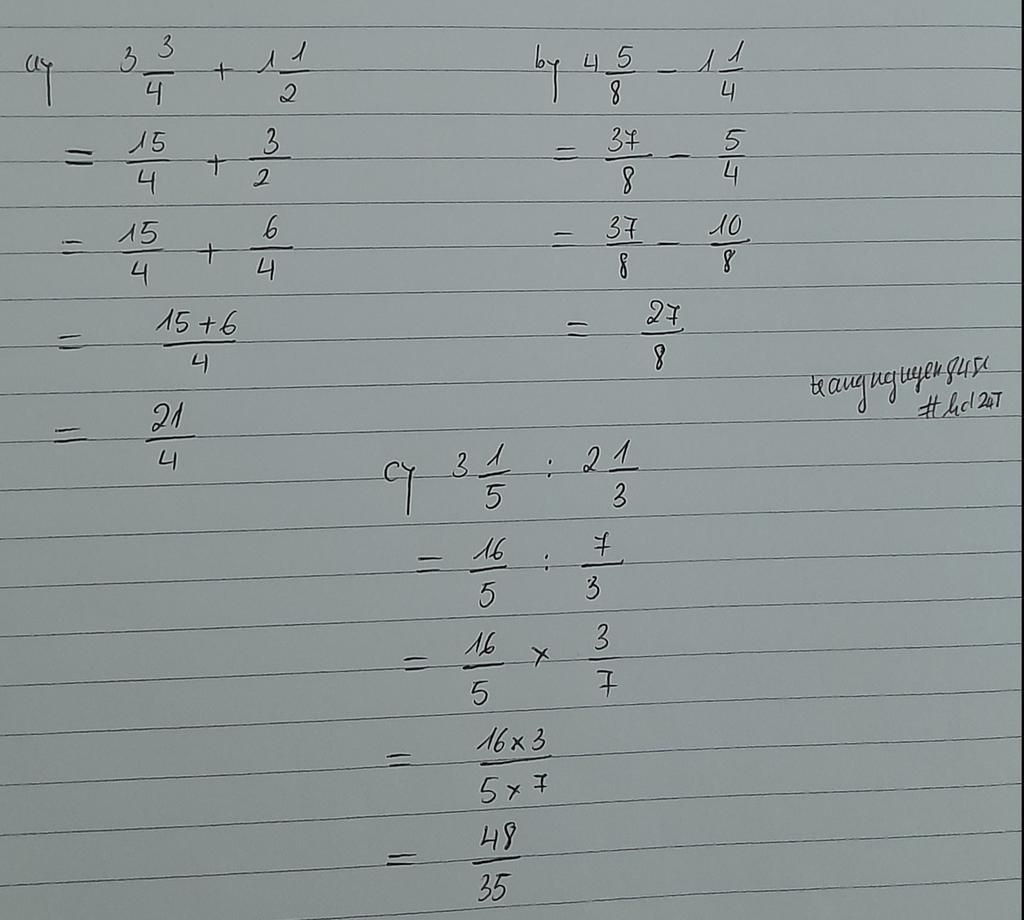 a) 3 3/4 + 1 1/2
= 15/4 + 3/2
= 15/4 + 6/4
= (15+6)/4
= 21/4
b) 4 5/8 - 1 1/4
= 37/8 - 5/4
= 37/8 - 10/8
= 27/8
#hd247
c) 3 1/5 : 2 1/3
= 16/5 : 7/3
= 16/5 × 3/7
= (16×3)/(5×7)
= 48/35